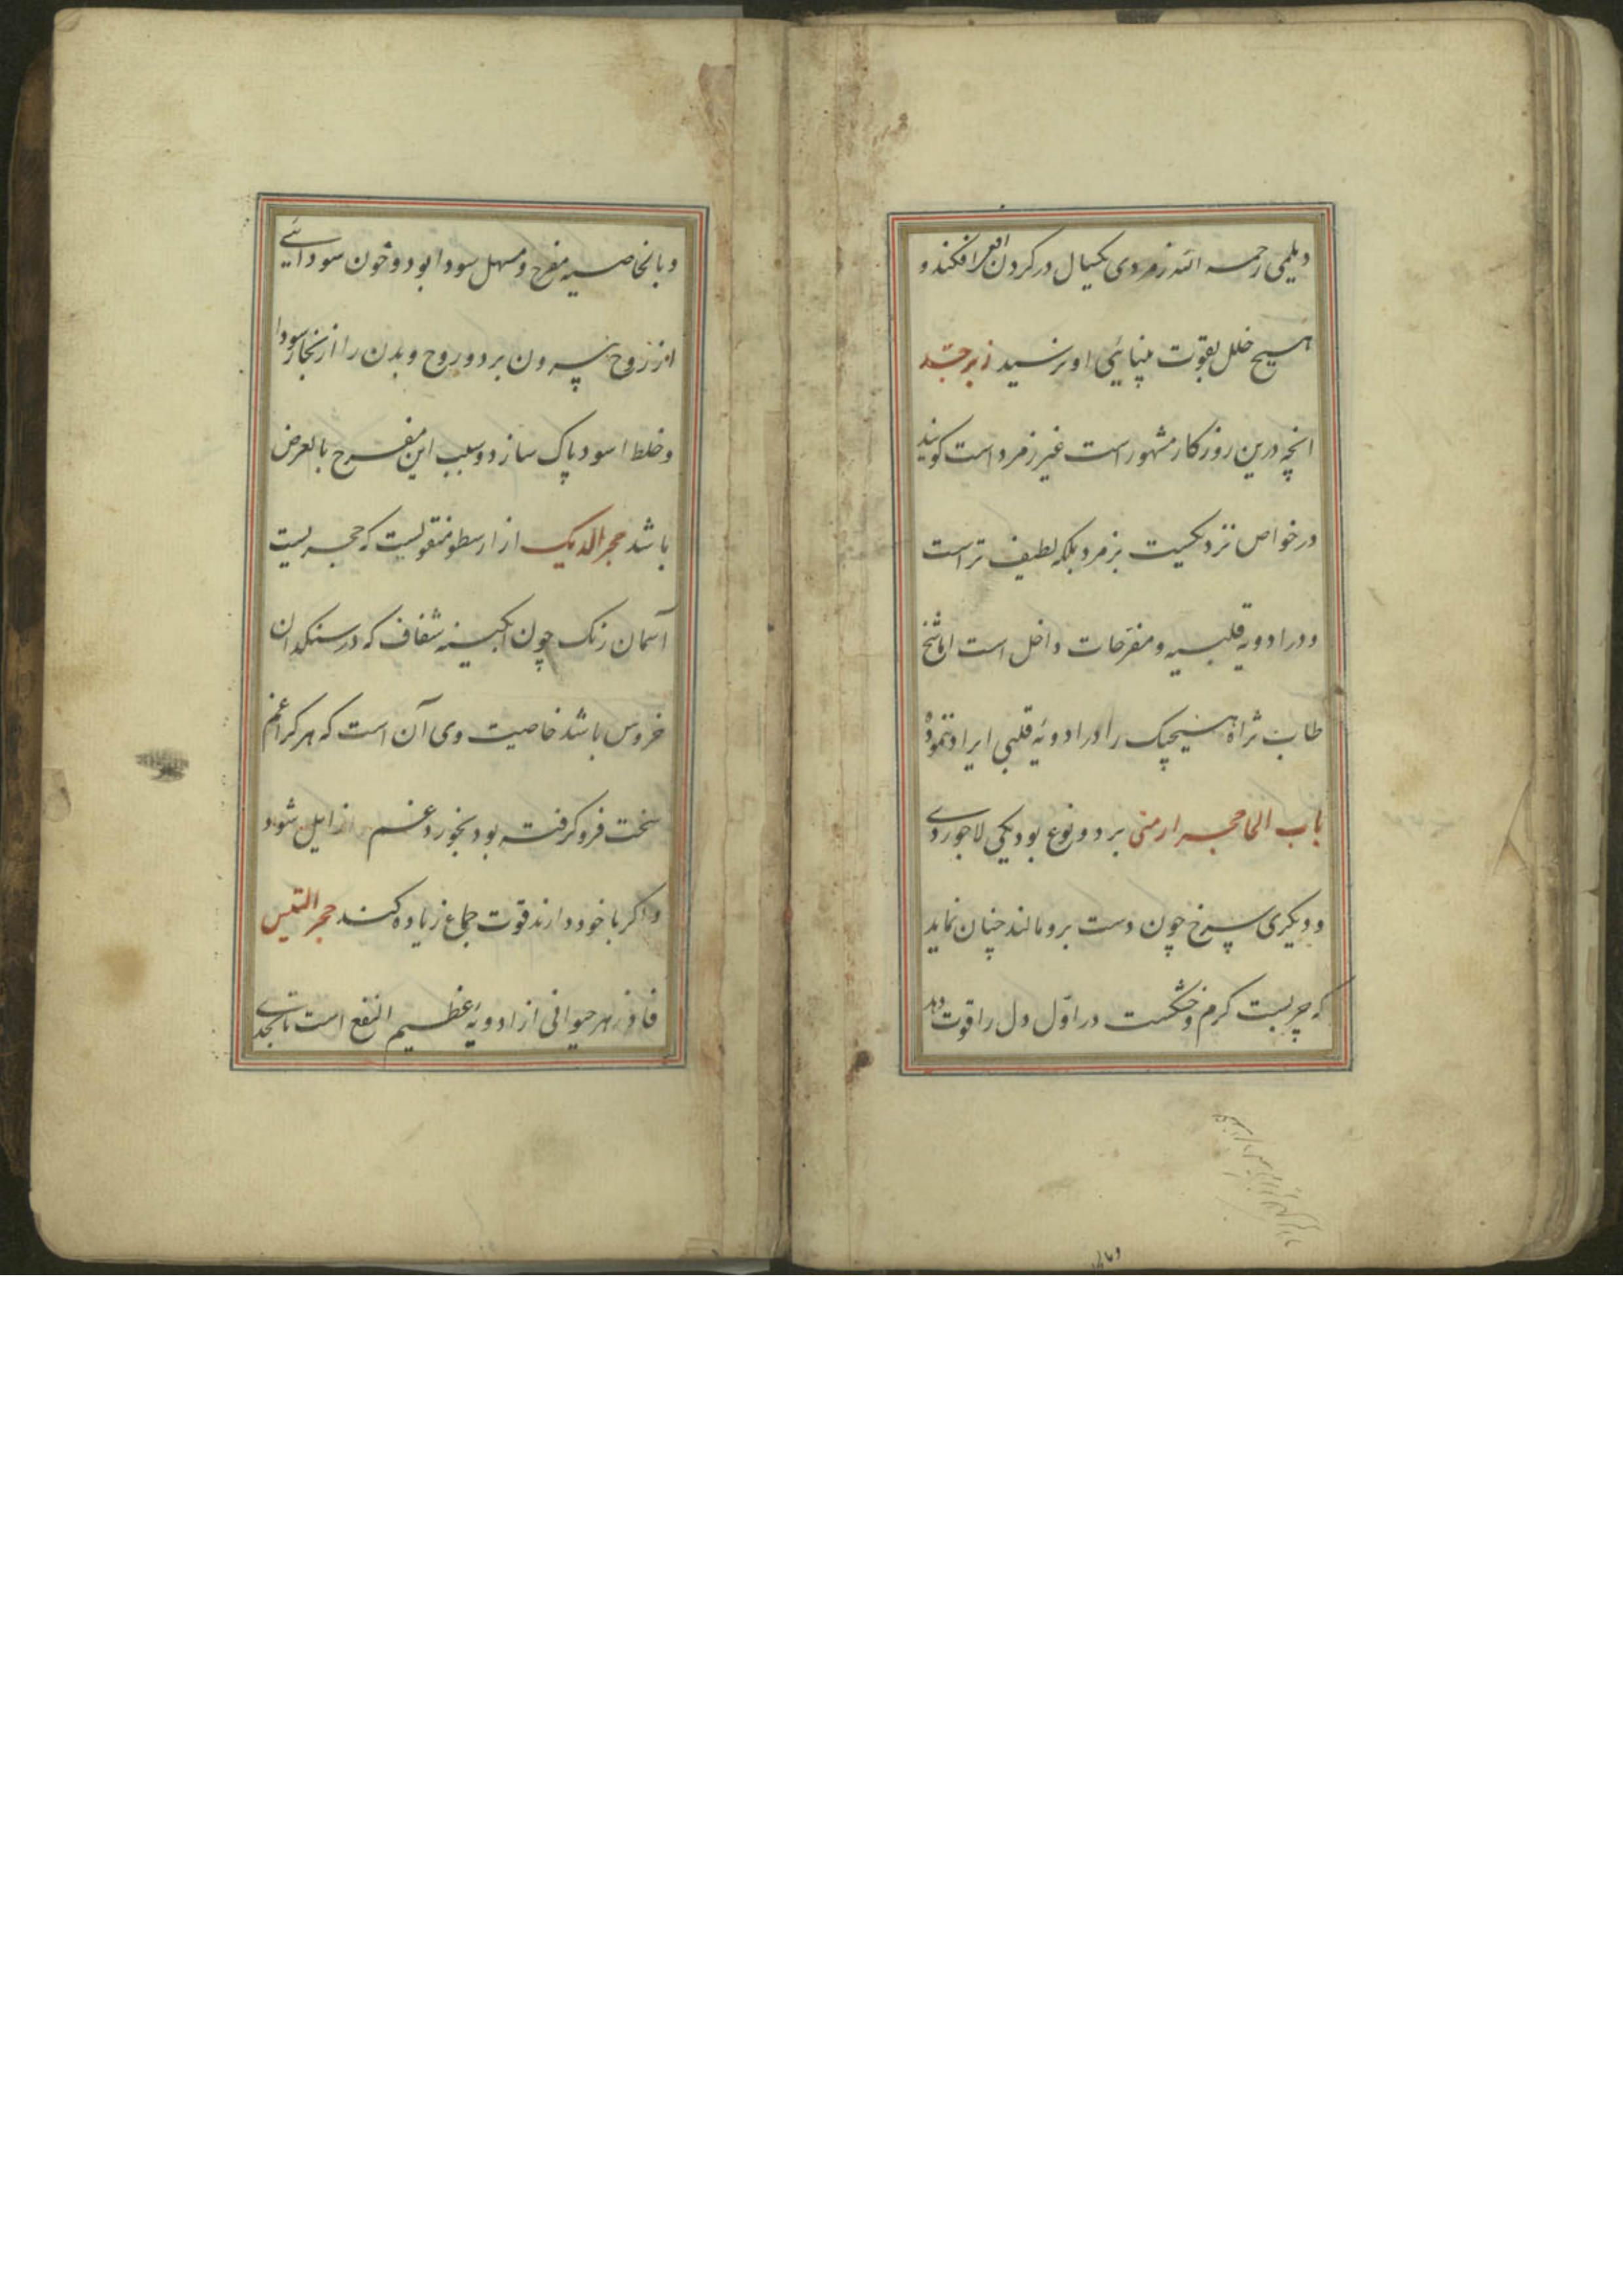 دیلمی رحمه الله زمردی یکسال در کردن افعی افکند و
هیچ خلل بقوت بینایی او نرسید زبرجد
انچه درین روزکار مشهور است غیر زمرد است کویند
در خواص نزدیکست بزمرد بلکه لطیف تر است
و در ادویه قلبیه و مفرحات داخل است اما شیخ
طاب ثراه هیچیک را در ادویه قلبی ایراد ننموده
باب الحا حجر ارمنی بر دو نوع بود یکی لاجوردی
و دیکری سرخ چون دست برو مالند چنان نماید
که چربست کرم و خشکست در اول دل را قوت دهد
و بالخاصیه مفرح و مسهل سودا بود و خون سودایی
از روح بیرون برد و روح و بدن را از بخار سودا
و خلط اسود پاک سازد و بسبب این مفرح بالعرض
باشد حجر الدیک از ارسطو منقولست که حجریست
آسمان رنک چون آبکینه شفاف که در سنکدان
خروس باشد خاصیت وی آن است که هر کرا غم
سخت فرو کرفته بود بخورد غم زایل شود
و اکر با خود دارند قوت جماع زیاده کند حجر التیس
فادزهر حیوانی از ادویه عظیم النفع است تا بحدی